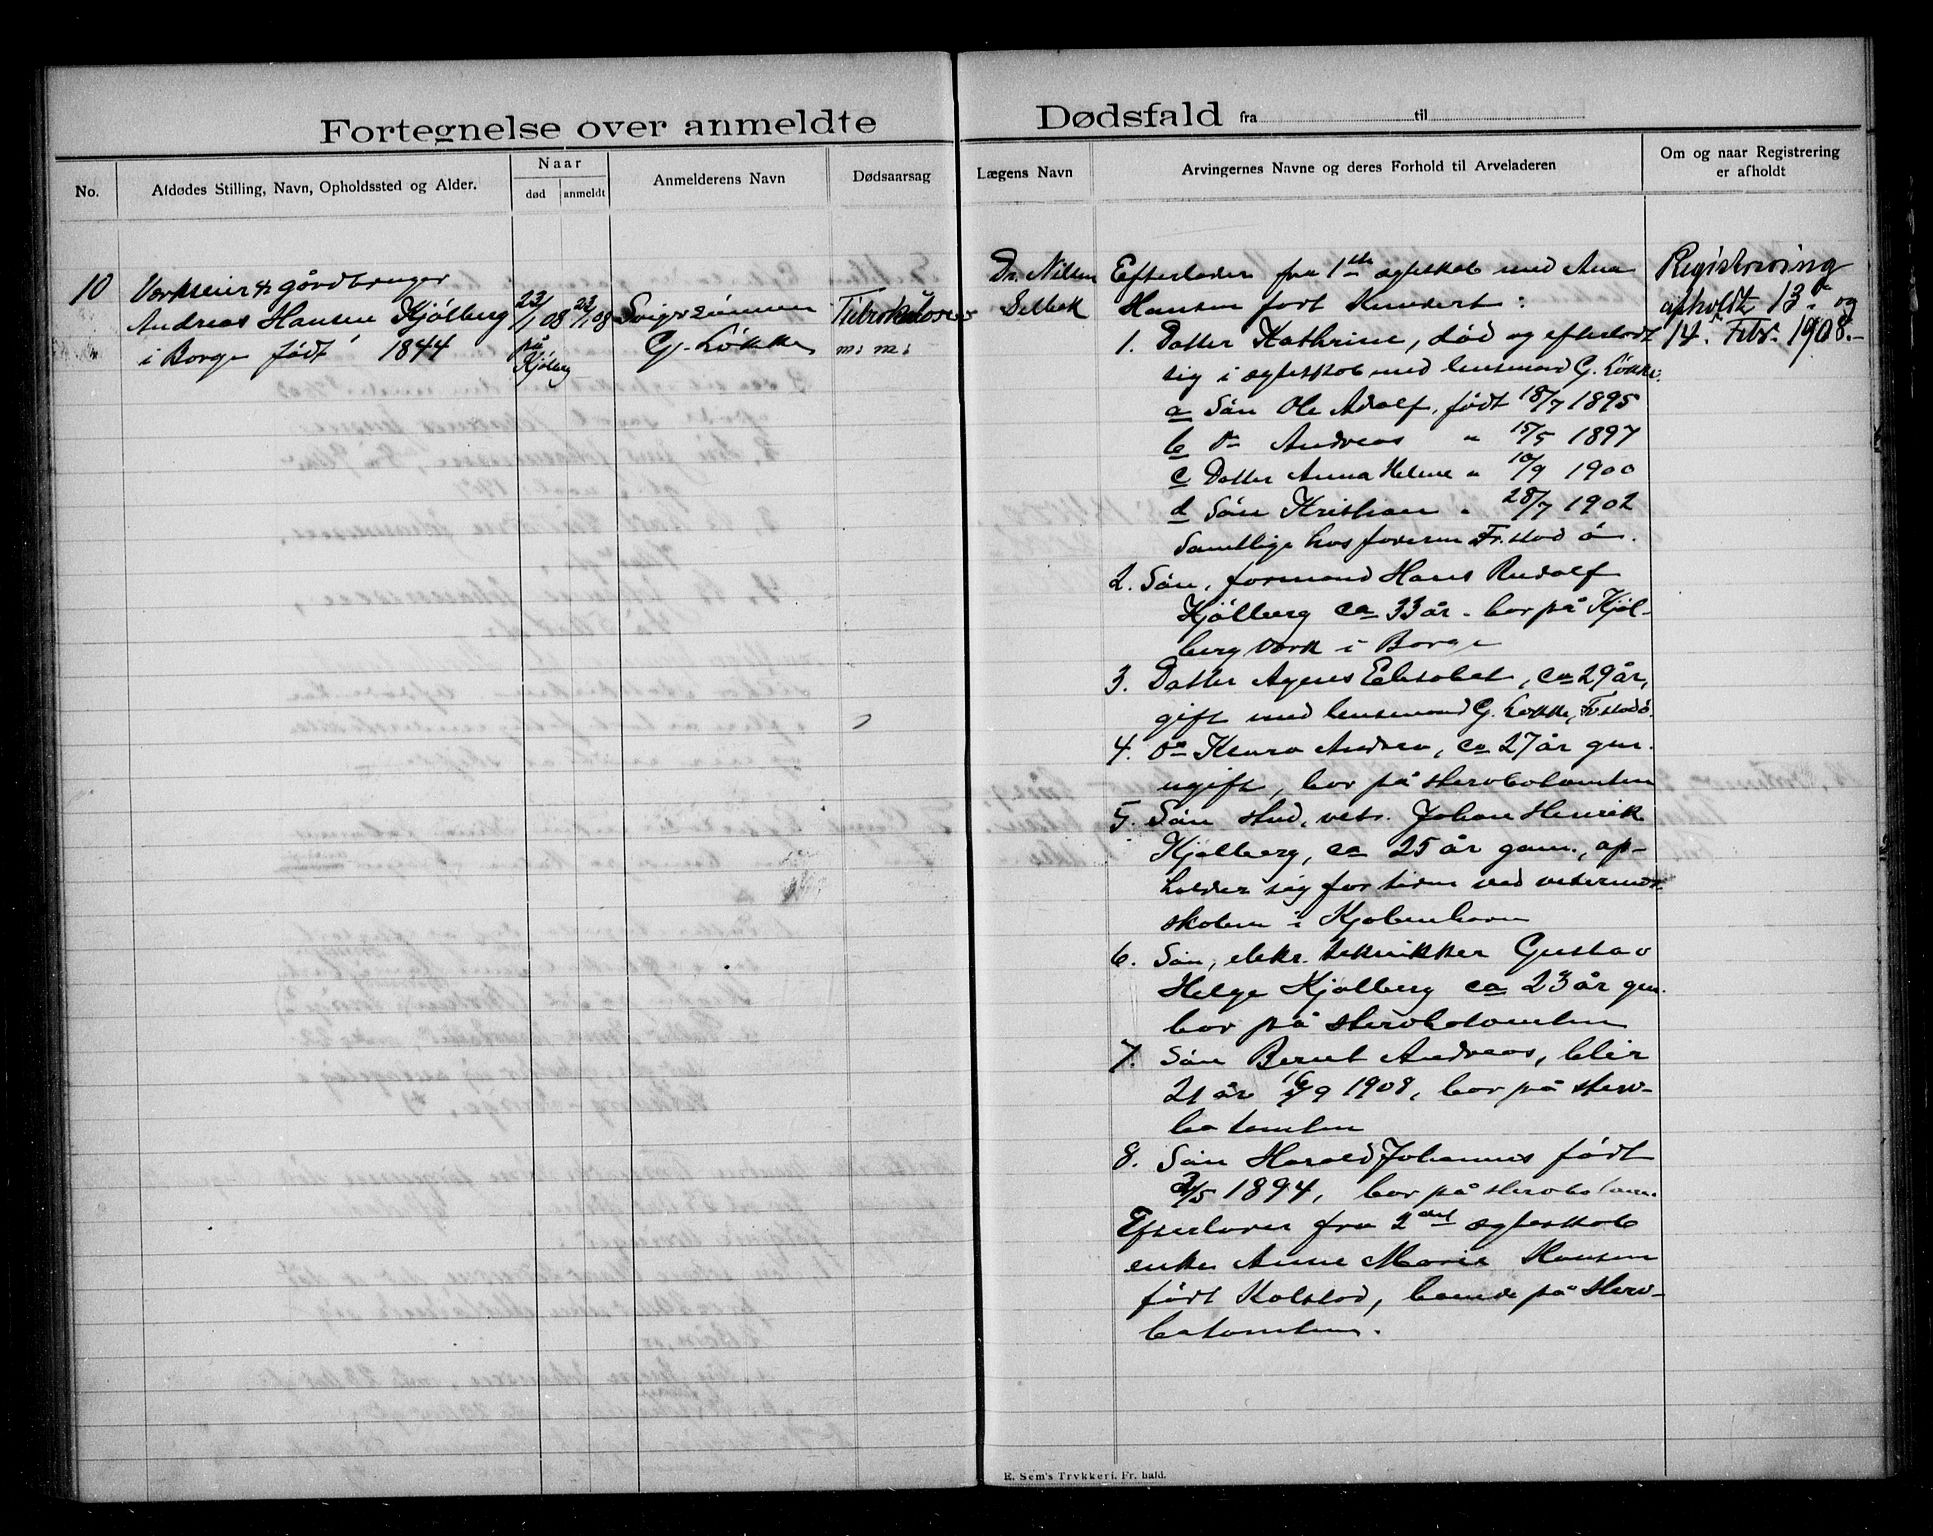 Fortegnelse over anmeldte Dødsfald fra til
No.
Afdødes Stilling, Navn, Opholdssted og Alder.
Naar
død
anmeldt
Anmelderens Navn
Dødsaarsag
Lægens Navn
Arvingernes Navne og deres Forhold til Arveladeren
Om og naar Registrering
er afholdt
10
Værkseier & gårdbruger
Andreas Hansen Kjølberg
i Borge født 1844
23/1 08
på
Kjølberg
23/1 08
Svigersönnen
G. Løkke
Tuberkulose
m. m.
Dr. Nilsen
Selbak
Efterlader fra 1ste ægteskab med Ana
Hansen født Kundert:
1. Datter Kathrine, død og efterlodt
sig i ægteskab med lensmand G. Løkke:
a Sön Ole Adolf, født 18/7 1895
b do Andreas " 15/5 1897
c Datter Anna Helene " 10/9 1900
d Sön Kristian " 28/7 1902
Samtlige hos faderen Fr.stad ö.
2. Sön, formand Hans Rudolf
Kjølberg ca 33 år. bor på Kjøl-
berg værk i Borge
3. Datter Agnes Elisabet, ca 29 år,
gift med lensmand G. Løkke, Fr.stad ö.
4. do Andrea, ca 27 år gm.
ugift, bor på Herrebøtomten
5. Sön stud. vetr. Johan Henrik
Kjølberg, ca 25 år gam., op-
holder sig for tiden ved veterinær
skolen i Kjøbenhavn
6. Sön, elektr. tekniker Gustav
Helge Kjølberg ca 23 år gm.
bor på Herrebøtomten
7. Sön Bernt Andreas, blir
21 år /9 1908, bor på Herre-
bøtomten
8. Sön Harald Johannes født
/5 1894, bor på Herrebøtomt.
Efterlader fra 2det ægteskab
enke Anne Marie Hansen
født Kolstad, boende på Herre-
bøtomten.
Registrering
afholdt 13. og
14. Febr. 1908.-
E. Sem's Trykkeri, Fr.hald.